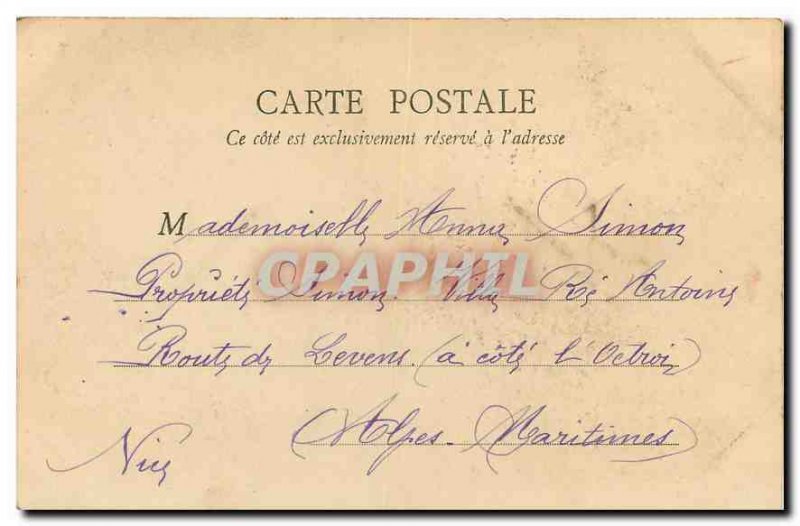 CARTE POSTALE
Ce côté est exclusivement réservé à l'adresse
Mademoiselle Anna Simon
Propriété Simon. Villa Ré Antoine
CPAPHIL
Route de Levens. (à côté l'Octroi)
Nice (Alpes-Maritimes)